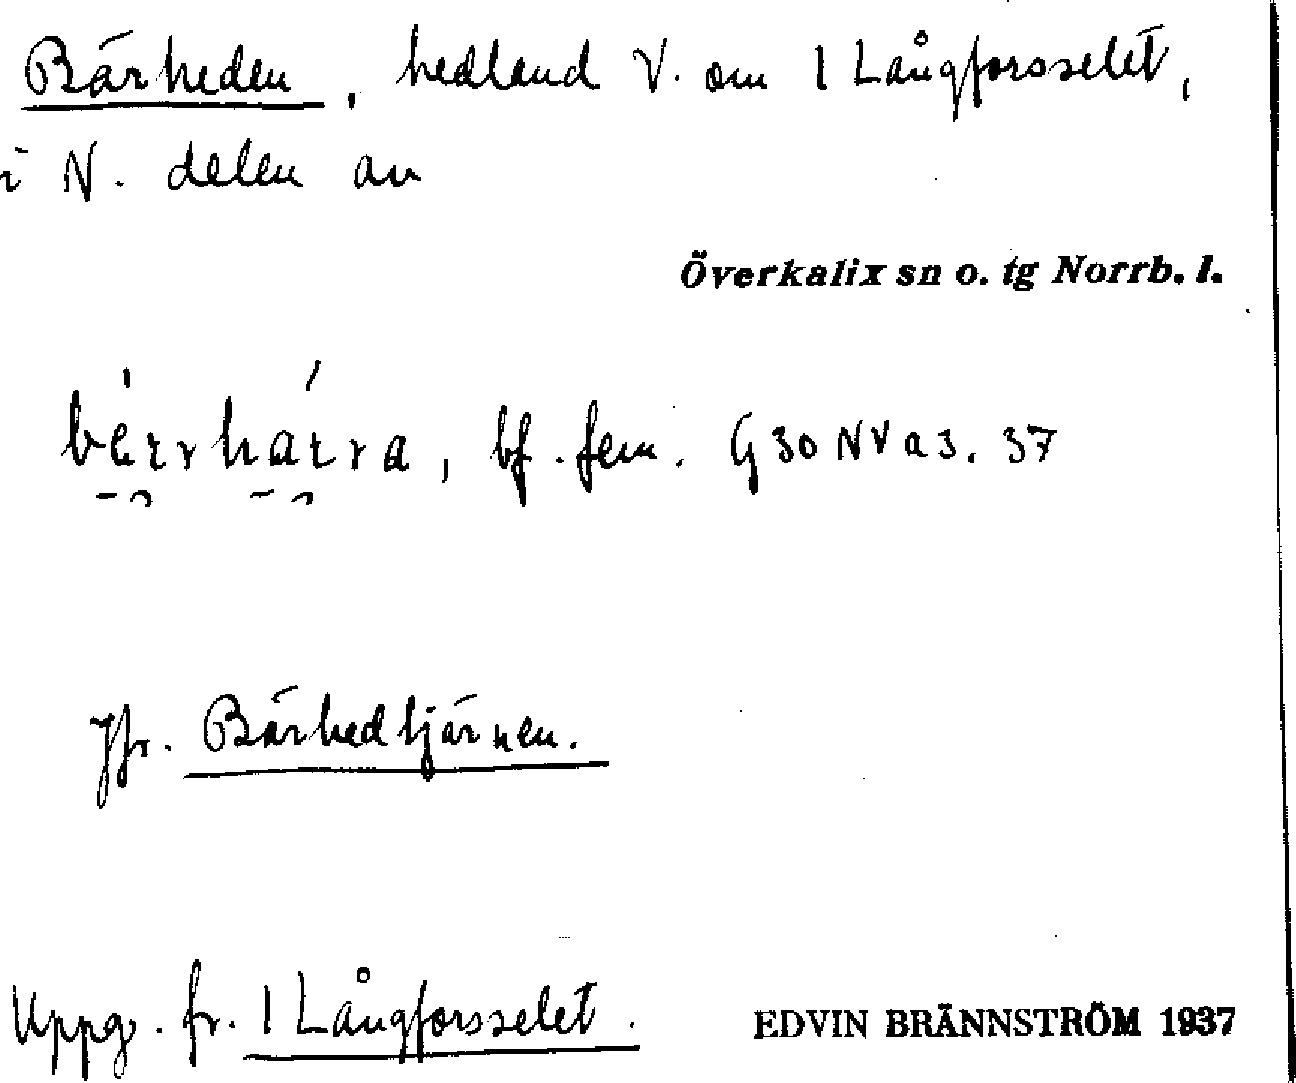 Bärheden, hedland V. om 1 Långforsselet,
i N. delen av
Överkalix sn o. tg Norrb. l.
bf. fem. G 30 NV a 3. 37
Jfr. Bärhedtjärnen.
Uppg. fr. 1 Långforsselet.
EDVIN BRÄNNSTRÖM 1937